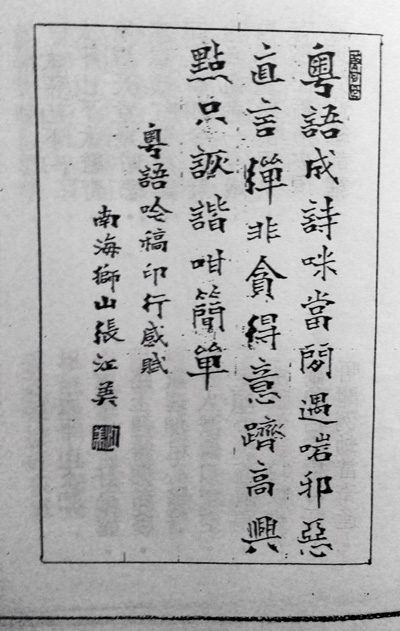 粵語成詩咪當閒遇啱邪惡
直言彈非貪得意躋高興
點只詼諧咁簡單
粵語吟稿印行感賦
南海獅山張江美